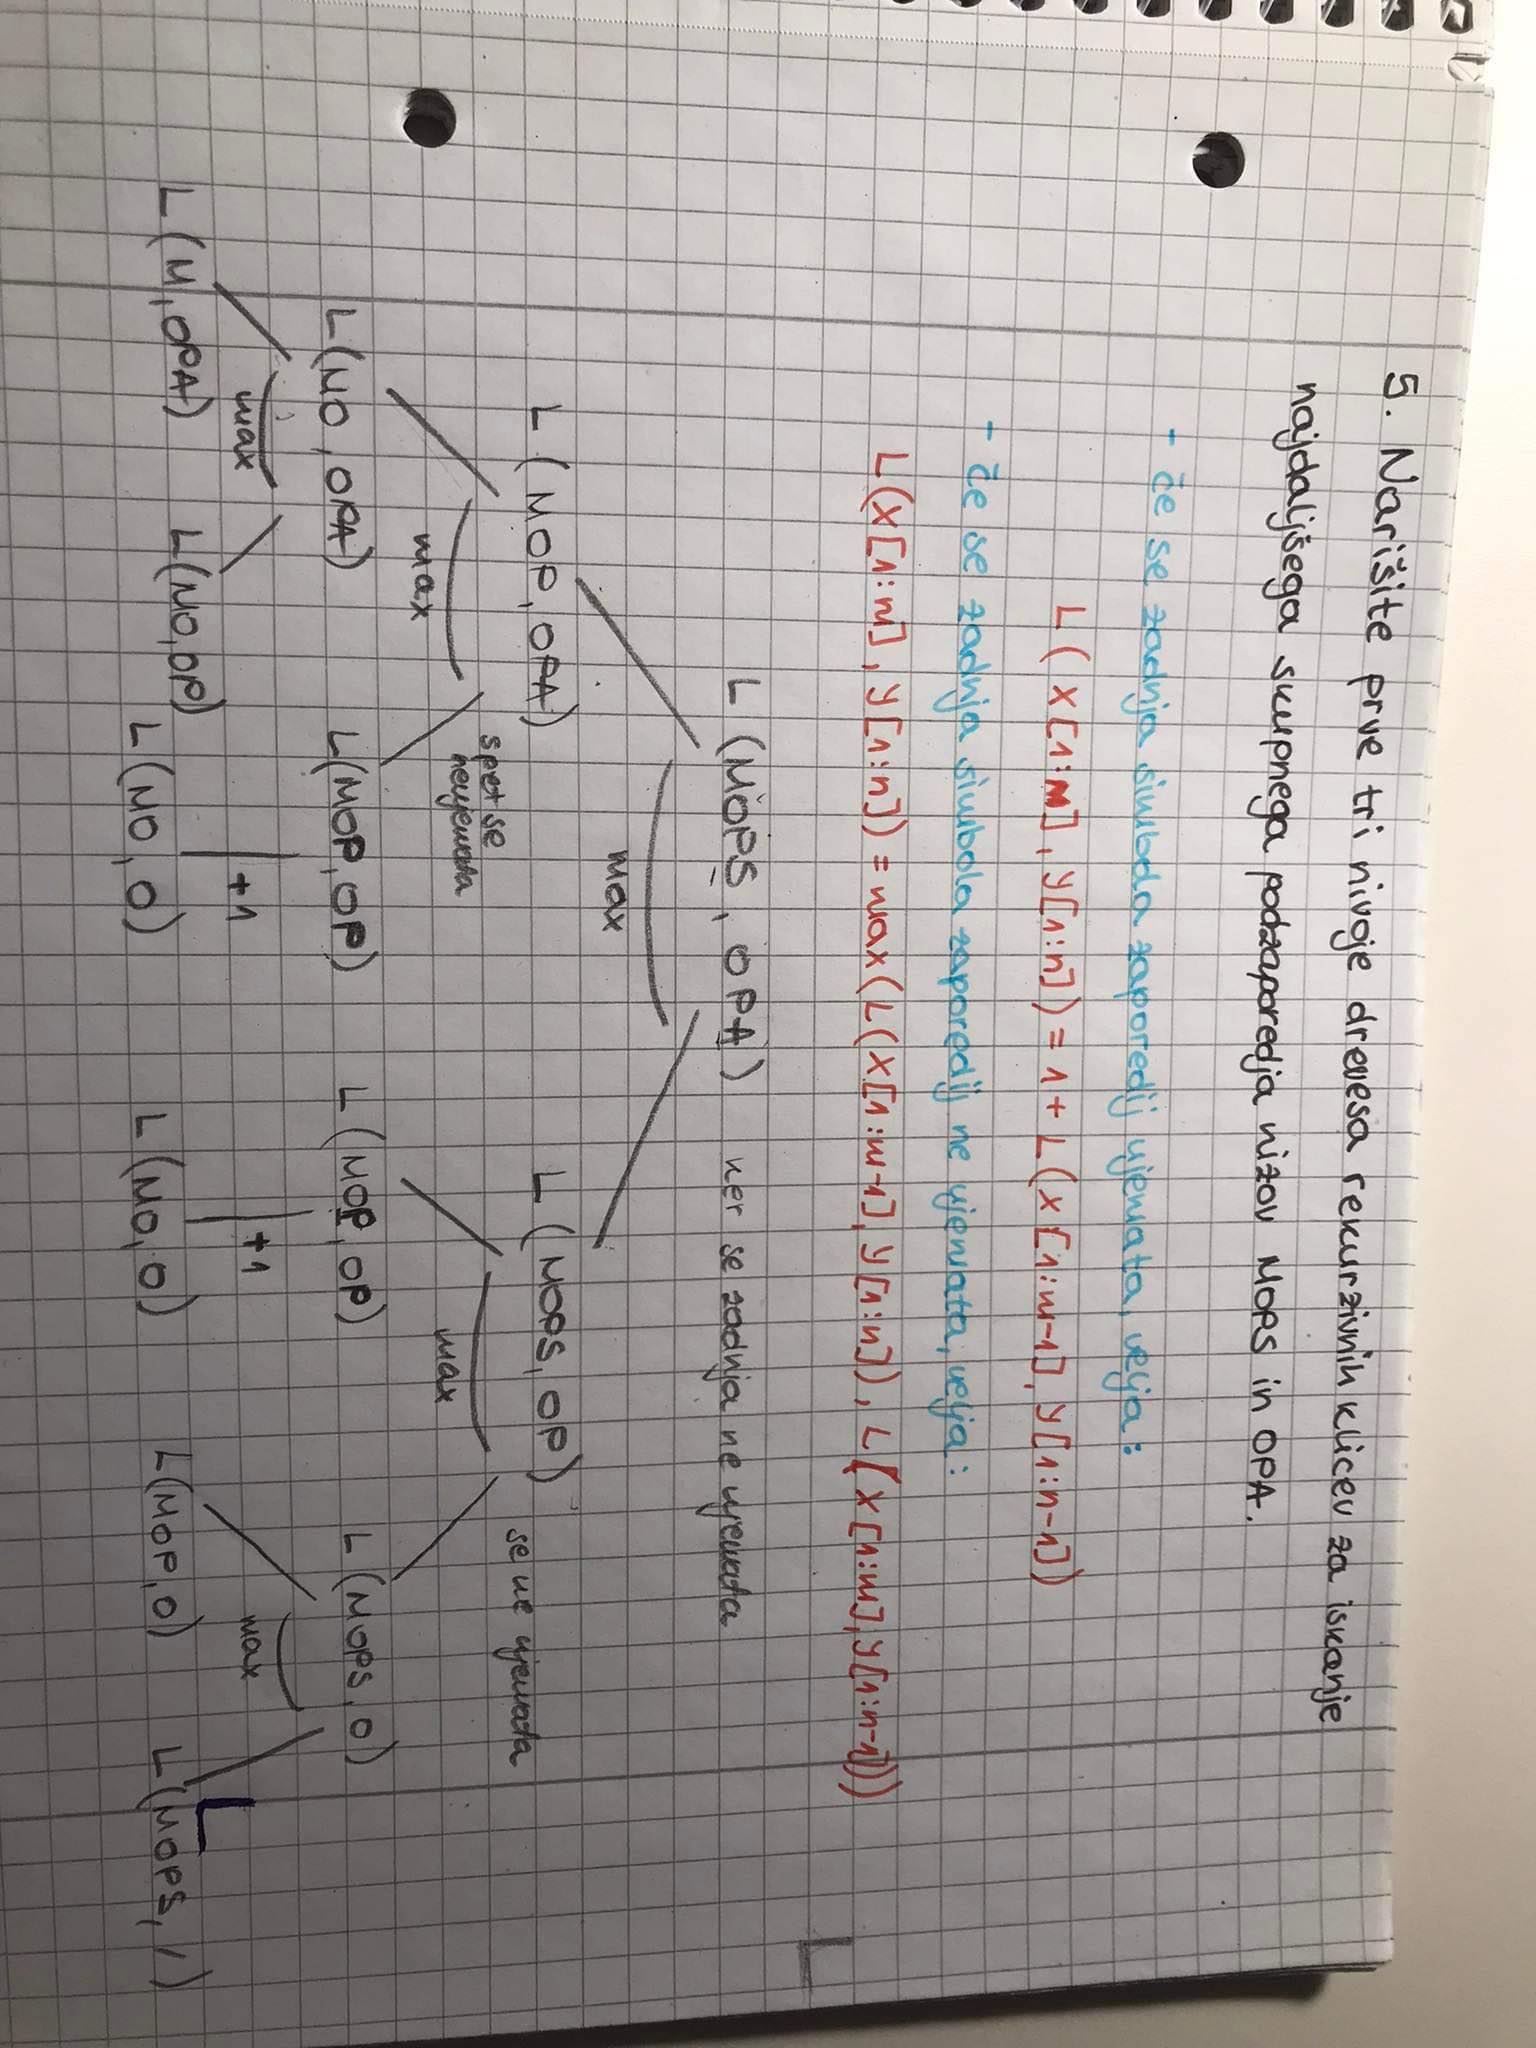 5. Narišite prve tri nivoje drevesa rekurzivnih klicev za iskanje
najdaljšega skupnega podzaporedja nizov MOPS in OPA.
- če se zadnja simbola zaporedij ujemata, velja:
L ( X [1:m] , Y[1:n] ) = 1 + L ( X [1:m-1], Y [1:n-1] )
- če se zadnja simbola zaporedij ne ujemata, velja:
L (X [1:m] , Y [1:n]) = max ( L ( X [1:m-1], Y [1:n]) , L ( X [1:m], Y [1:n-1]))
L (MOPS , OPA) ker se zadnja ne ujemata
max
L (MOP, OPA) L (MOPS, OP)
spet se
ne ujemata
se ne ujemata
max max
L(MO, OPA) L(MOP, OP) L (MOP, OP) L (MOPS, O)
max +1 +1 max
L (M, OPA) L(MO, OP) L (MO, O) L (MO, O) L(MOP, O) L (MOPS, /)